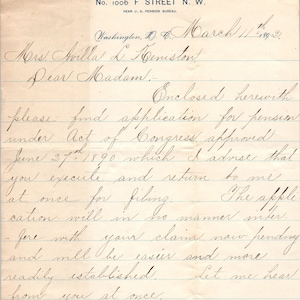 No. 1006 F STREET N. W.
NEAR U. S. PENSION BUREAU.
Washington, D. C., March 11th
Mrs. L. Keniston
Dear Madam,-
Enclosed herewith
please find application for pension
under Act of Congress approved
June 27th 1890 which I advise that
you execute and return to me
at once for filing. The appli
cation will in no manner inter
fere with your claim now pending
and will be easier and more
readily established. Let me hear
from you at once.